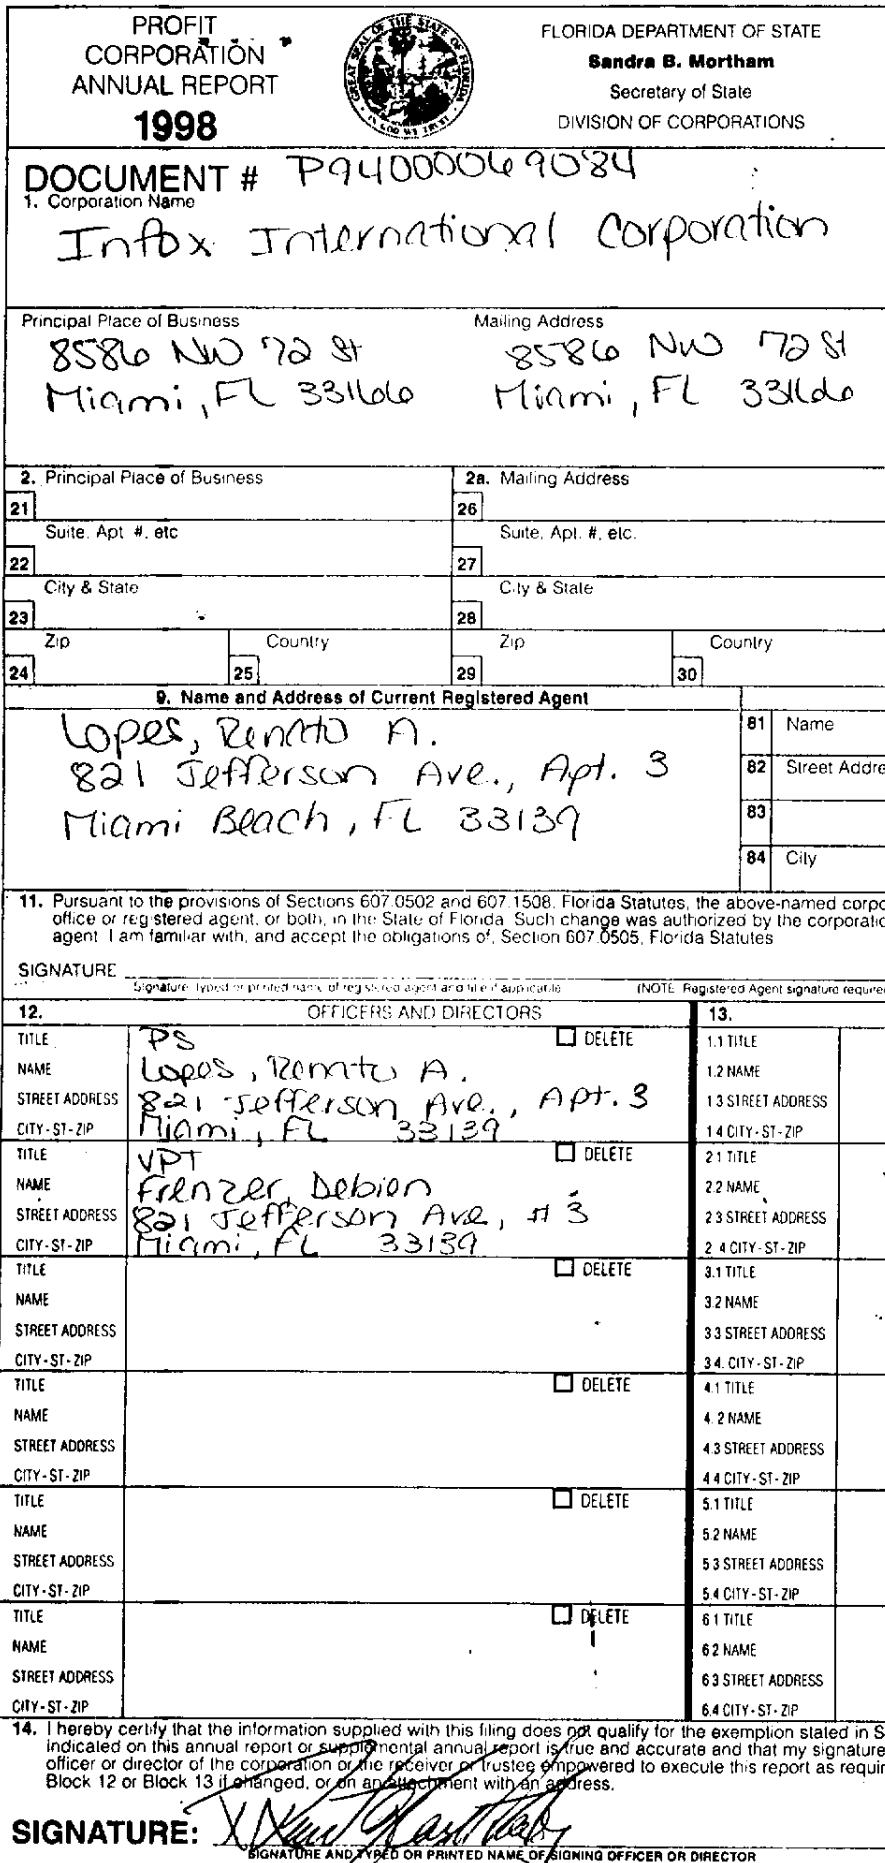 PROFIT
CORPORATION
ANNUAL REPORT
1998
GREAT SEAL OF THE STATE OF FLORIDA
IN GOD WE TRUST
FLORIDA DEPARTMENT OF STATE
Sandra B. Mortham
Secretary of State
DIVISION OF CORPORATIONS
DOCUMENT # P94000069084
1. Corporation Name
Infox International Corporation
Principal Place of Business
8586 NW 72 St
Miami, FL 33166
Mailing Address
8586 NW 72 St
Miami, FL 33166
2. Principal Place of Business
2a. Mailing Address
21
26
Suite, Apt #, etc
Suite, Apt. #, etc.
22
27
City & State
City & State
23
28
Zip
Country
Zip
Country
24
25
29
30
9. Name and Address of Current Registered Agent
Lopes, Renato A.
821 Jefferson Ave., Apt. 3
Miami Beach, FL 33139
81 Name
82 Street Addre
83
84 City
11. Pursuant to the provisions of Sections 607.0502 and 607.1508, Florida Statutes, the above-named corpo
office or registered agent, or both, in the State of Florida. Such change was authorized by the corporatio
agent. I am familiar with, and accept the obligations of, Section 607.0505, Florida Statutes
SIGNATURE
Signature, typed or printed name of registered agent and title if applicable
(NOTE: Registered Agent signature require
12. OFFICERS AND DIRECTORS
13.
TITLE PS DELETE
NAME Lopes, Renato A.
STREET ADDRESS 821 Jefferson Ave., Apt. 3
CITY-ST-ZIP Miami, FL 33139
1.1 TITLE
1.2 NAME
1.3 STREET ADDRESS
1.4 CITY-ST-ZIP
TITLE VPT DELETE
NAME Frenzer, Debien
STREET ADDRESS 821 Jefferson Ave, #3
CITY-ST-ZIP Miami, FL 33139
2.1 TITLE
2.2 NAME
2.3 STREET ADDRESS
2.4 CITY-ST-ZIP
TITLE DELETE
NAME
STREET ADDRESS
CITY-ST-ZIP
3.1 TITLE
3.2 NAME
3.3 STREET ADDRESS
3.4. CITY-ST-ZIP
TITLE DELETE
NAME
STREET ADDRESS
CITY-ST-ZIP
4.1 TITLE
4.2 NAME
4.3 STREET ADDRESS
4.4 CITY-ST-ZIP
TITLE DELETE
NAME
STREET ADDRESS
CITY-ST-ZIP
5.1 TITLE
5.2 NAME
5.3 STREET ADDRESS
5.4 CITY-ST-ZIP
TITLE DELETE
NAME
STREET ADDRESS
CITY-ST-ZIP
6.1 TITLE
6.2 NAME
6.3 STREET ADDRESS
6.4 CITY-ST-ZIP
14. I hereby certify that the information supplied with this filing does not qualify for the exemption stated in S
indicated on this annual report or supplemental annual report is true and accurate and that my signature
officer or director of the corporation or the receiver or trustee empowered to execute this report as requir
Block 12 or Block 13 if changed, or on an attachment with an address.
SIGNATURE: X
SIGNATURE AND TYPED OR PRINTED NAME OF SIGNING OFFICER OR DIRECTOR